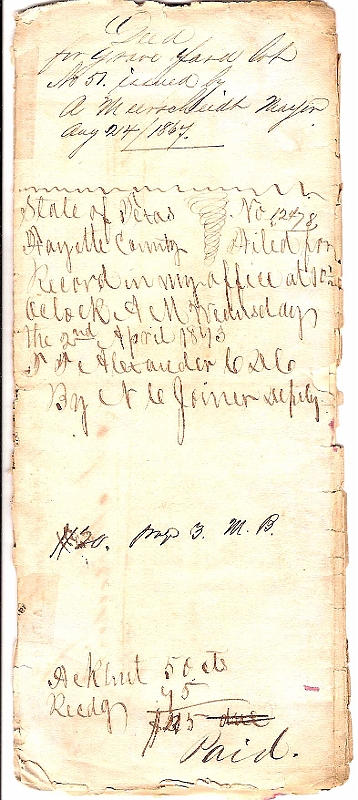 Deed
for Grave Yard Lot
No 51. issued by
A Meerscheidt Mayor
Aug 24/1867.
State of Texas No 1248
Fayette County Filed for
Record in my office at 10
oclock A M Wednesday
the 2nd April 1873
Alexander C D C
By N C Joiner Deputy
#20. page 3. M. B.
50 cts
75
Recdg
due
Paid.